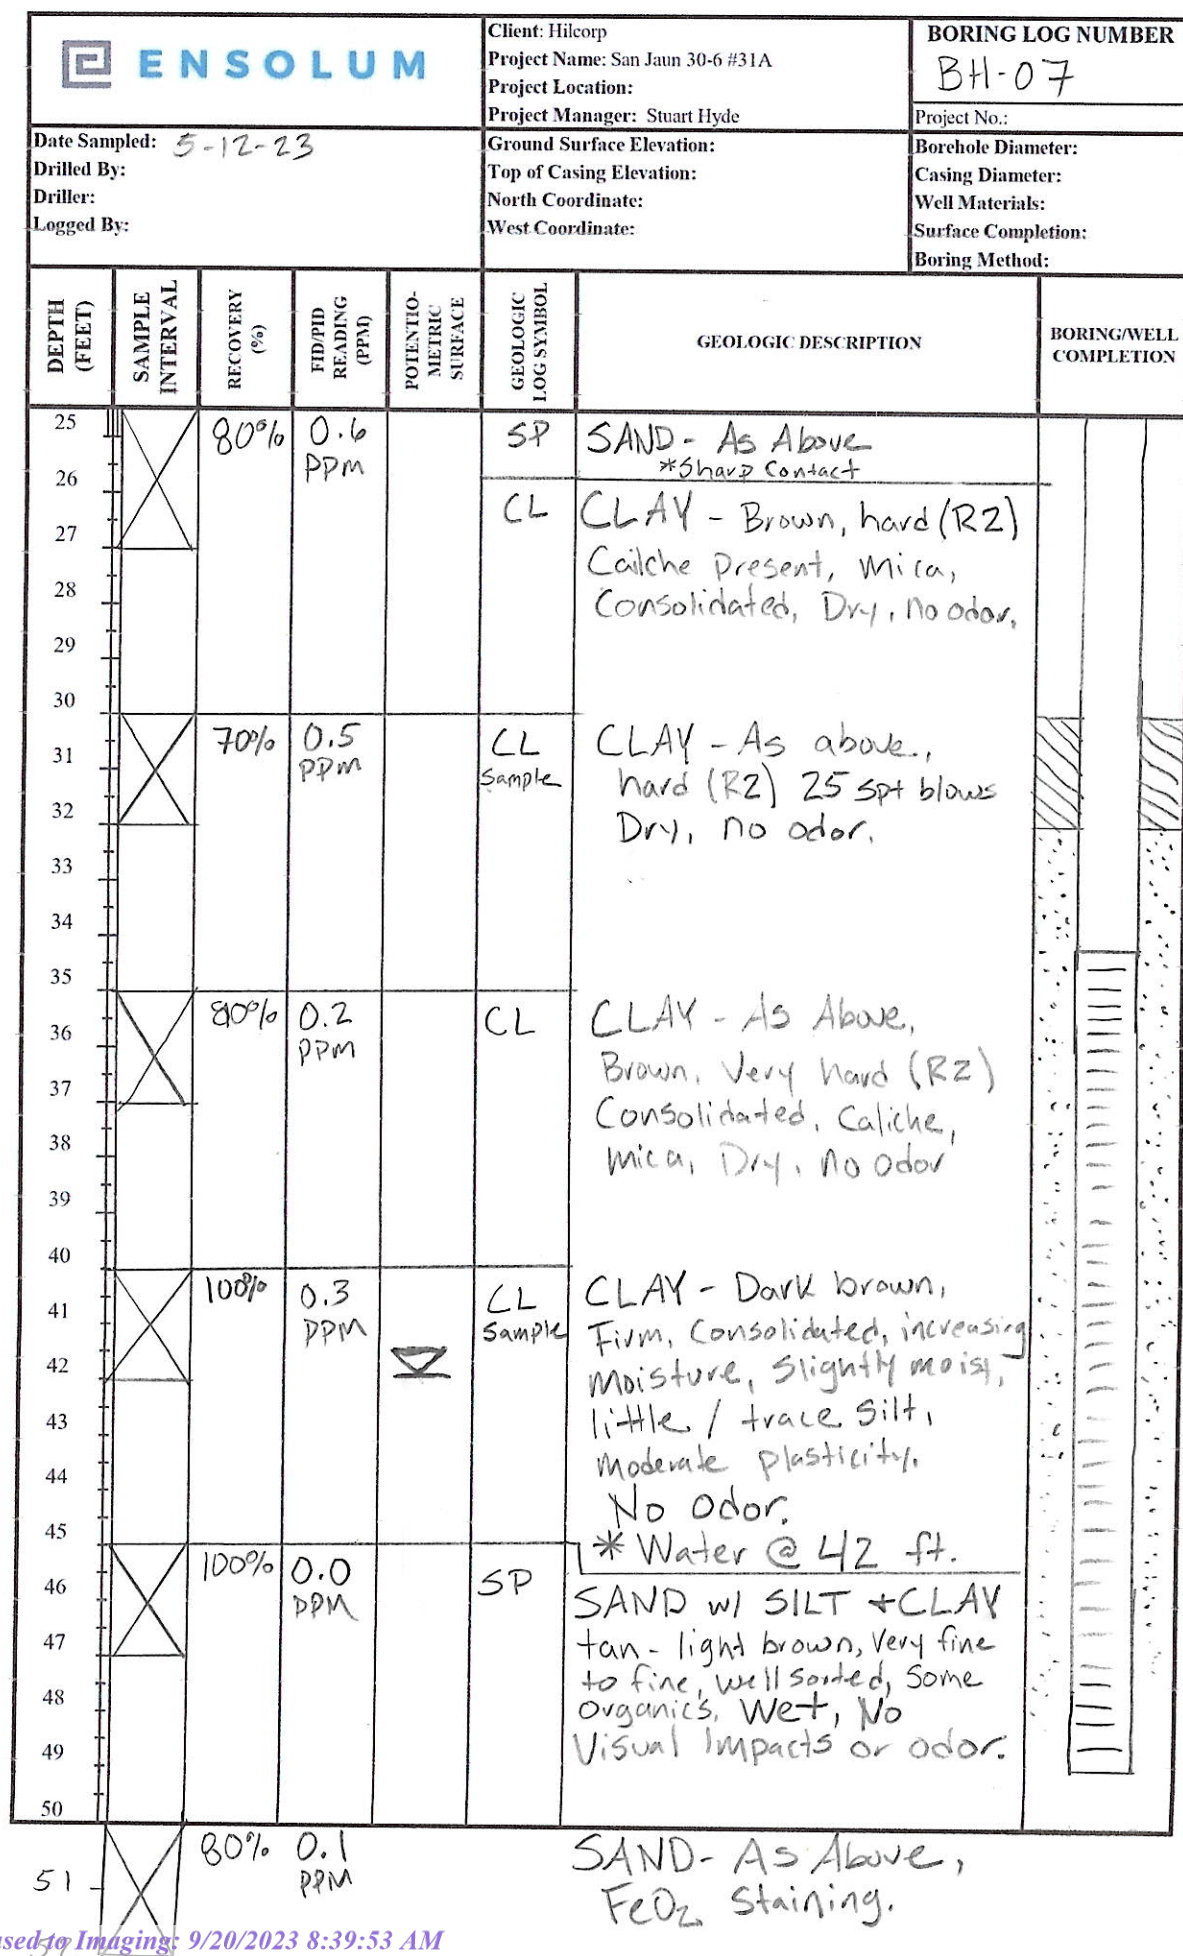 ENSOLUM
Client: Hilcorp
Project Name: San Jaun 30-6 #31A
Project Location:
Project Manager: Stuart Hyde
BORING LOG NUMBER
BH-07
Project No.:
Date Sampled: 5-12-23
Drilled By:
Driller:
Logged By:
Ground Surface Elevation:
Top of Casing Elevation:
North Coordinate:
West Coordinate:
Borehole Diameter:
Casing Diameter:
Well Materials:
Surface Completion:
Boring Method:
DEPTH (FEET)
SAMPLE INTERVAL
RECOVERY (%)
FID/PID READING (PPM)
POTENTIO-METRIC SURFACE
GEOLOGIC LOG SYMBOL
GEOLOGIC DESCRIPTION
BORING/WELL COMPLETION
25 80% 0.6 SP SAND - As Above
PPM *Sharp Contact
26 CL CLAY - Brown, hard (R2)
27 Cailche Present, Mica,
28 Consolidated, Dry, no odor.
29
30
70% 0.5 CL CLAY - As above,
31 PPM Sample hard (R2) 25 spt blows
32 Dry, no odor.
33
34
35
80% 0.2 CL CLAY - As Above,
36 PPM Brown, Very hard (R2)
37 Consolidated, Caliche,
38 mica, Dry, no odor
39
40
100% 0.3 CL CLAY - Dark brown,
41 PPM Sample Firm, Consolidated, increasing
42 Moisture, Slightly moist,
43 little / trace silt,
44 Moderate plasticity.
No Odor.
45 * Water @ 42 ft.
100% 0.0 SP
46 PPM SAND w/ SILT + CLAY
47 tan - light brown, Very fine
to fine, well sorted, Some
48 Organics. Wet, No
49 Visual Impacts or odor.
50
80% 0.1 SAND - As Above,
51 PPM FeO2 Staining.
used to Imaging: 9/20/2023 8:39:53 AM